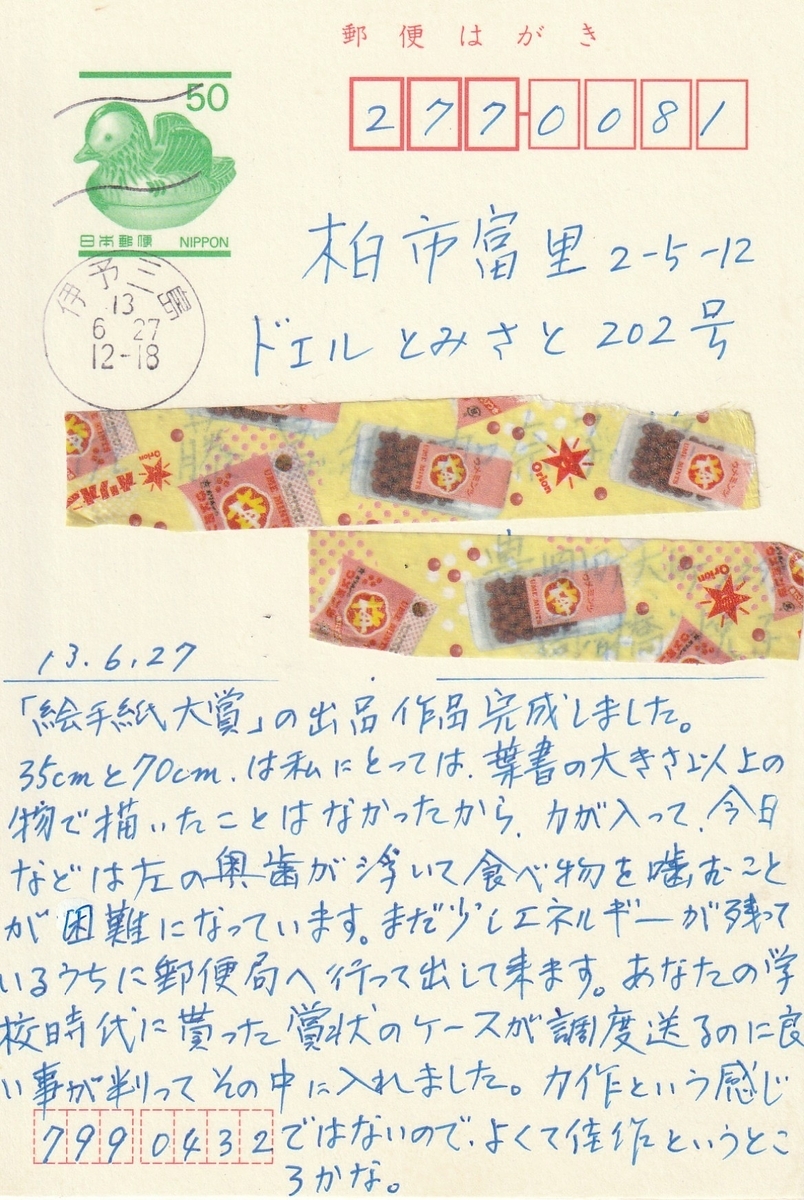 郵便はがき
50
日本郵便 NIPPON
277-0081
伊予三島
13
6 27
12-18
柏市富里2-5-12
ドエルとみさと202号
Orion
梅
ウメミンツ
UME MINTS
Orion
梅
ウメミンツ
UME MINTS
13.6.27
「絵手紙大賞」の出品作品完成しました。
35cmと70cm.は私にとっては、葉書の大きさ以上の
物で描いたことはなかったから、力が入って、今日
などは左の奥歯が浮いて食べ物を噛むこと
が困難になっています。まだ少しエネルギーが残って
いるうちに郵便局へ行って出して来ます。あなたの学
校時代に貰った賞状のケースが調度送るのに良
い事が判ってその中に入れました。力作という感じ
ではないので、よくて佳作というとこ
ろかな。
7990432